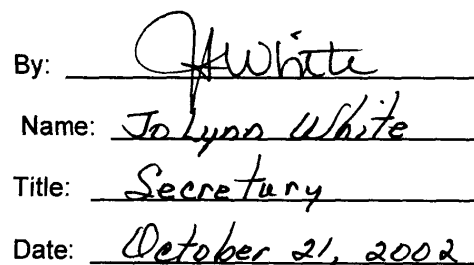 By: JLWhite
Name: JoLynn White
Title: Secretary
Date: October 21, 2002